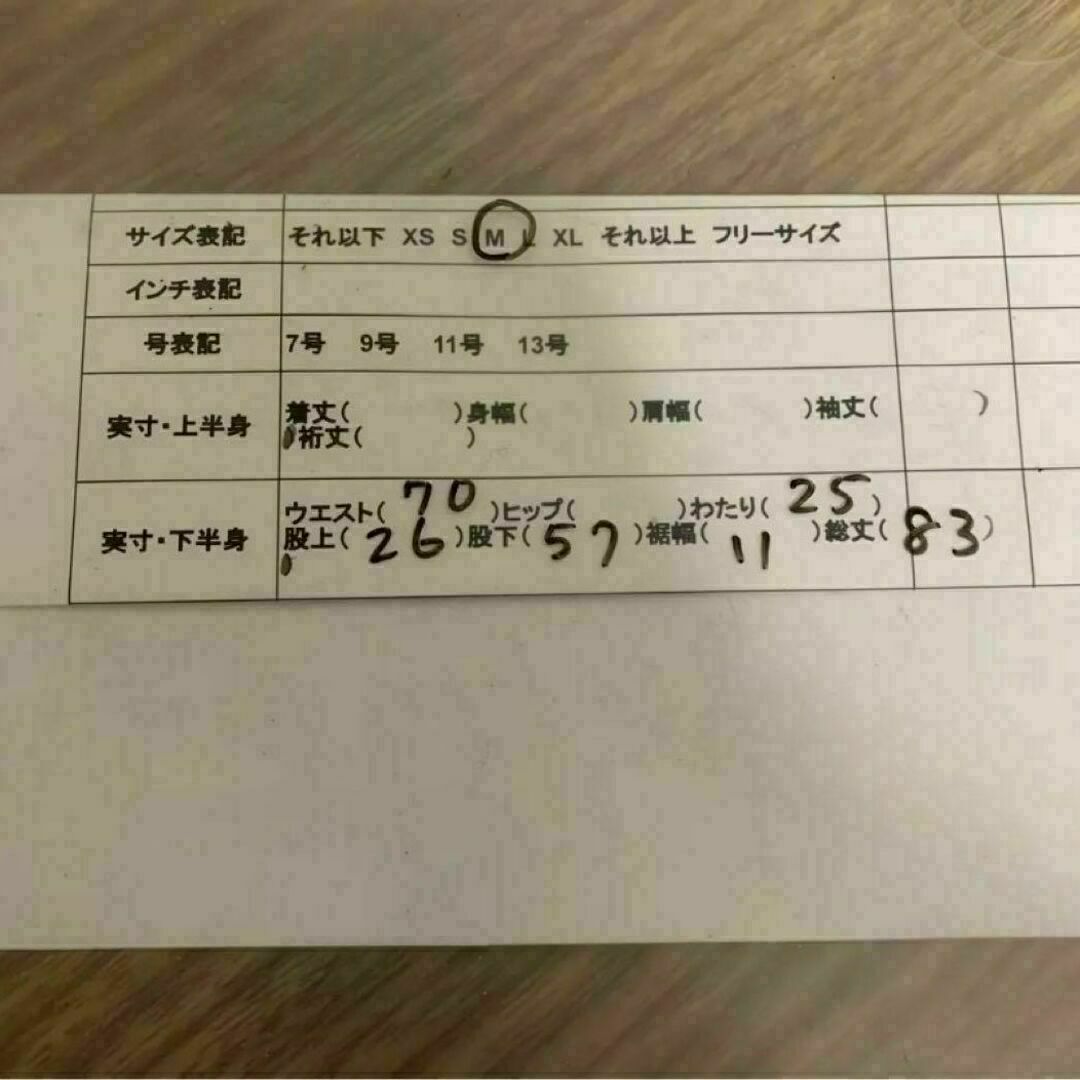 サイズ表記 それ以下 XS S M L XL それ以上 フリーサイズ
インチ表記
号表記 7号 9号 11号 13号
実寸・上半身 着丈( )身幅( )肩幅( )袖丈( )
裄丈( )
実寸・下半身 ウエスト( 70 )ヒップ( )わたり( 25 )
股上( 26 )股下( 57 )裾幅( 11 )総丈( 83 )